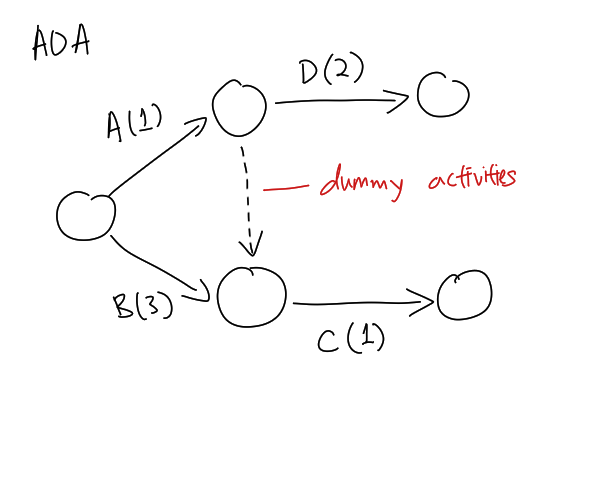 AOA
D(2)
A(1)
dummy activities
B(3)
C(1)